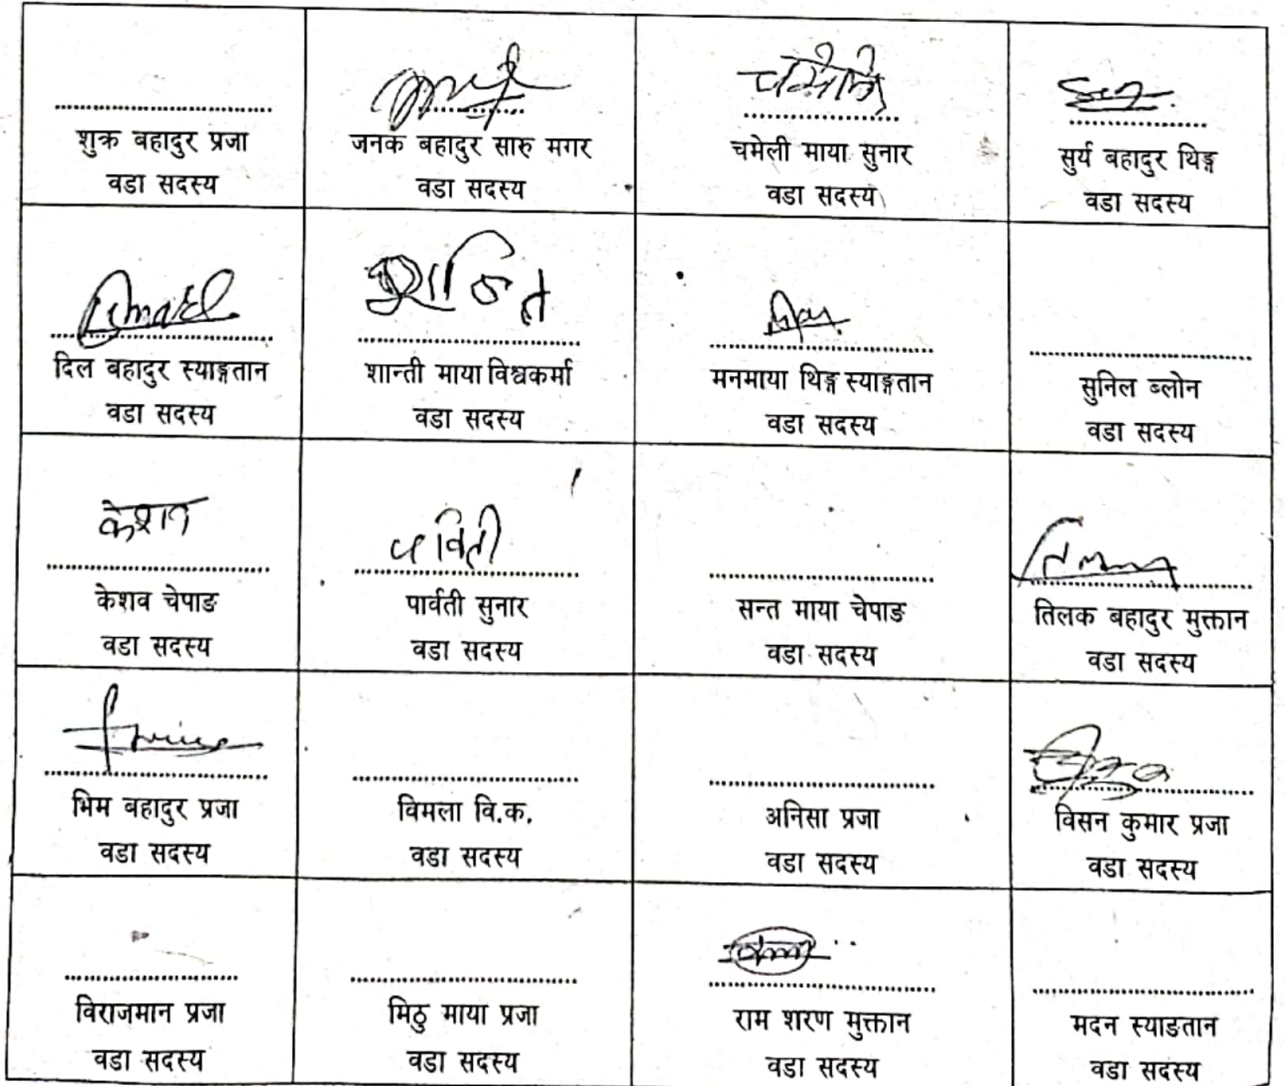 शुक्र बहादुर प्रजा
वडा सदस्य
जनक बहादुर सारु मगर
वडा सदस्य
चमेली
चमेली माया सुनार
वडा सदस्य
सुर्य बहादुर थिङ्ग
वडा सदस्य
दिल बहादुर स्याङ्गतान
वडा सदस्य
शान्ती माया विश्वकर्मा
वडा सदस्य
मनमाया थिङ्ग स्याङ्गतान
वडा सदस्य
सुनिल ब्लोन
वडा सदस्य
केशव
केशव चेपाङ
वडा सदस्य
पार्वती सुनार
वडा सदस्य
सन्त माया चेपाङ
वडा सदस्य
तिलक बहादुर मुक्तान
वडा सदस्य
भिम बहादुर प्रजा
वडा सदस्य
विमला वि.क.
वडा सदस्य
अनिसा प्रजा
वडा सदस्य
विसन कुमार प्रजा
वडा सदस्य
विराजमान प्रजा
वडा सदस्य
मिठु माया प्रजा
वडा सदस्य
राम शरण मुक्तान
वडा सदस्य
मदन स्याङतान
वडा सदस्य